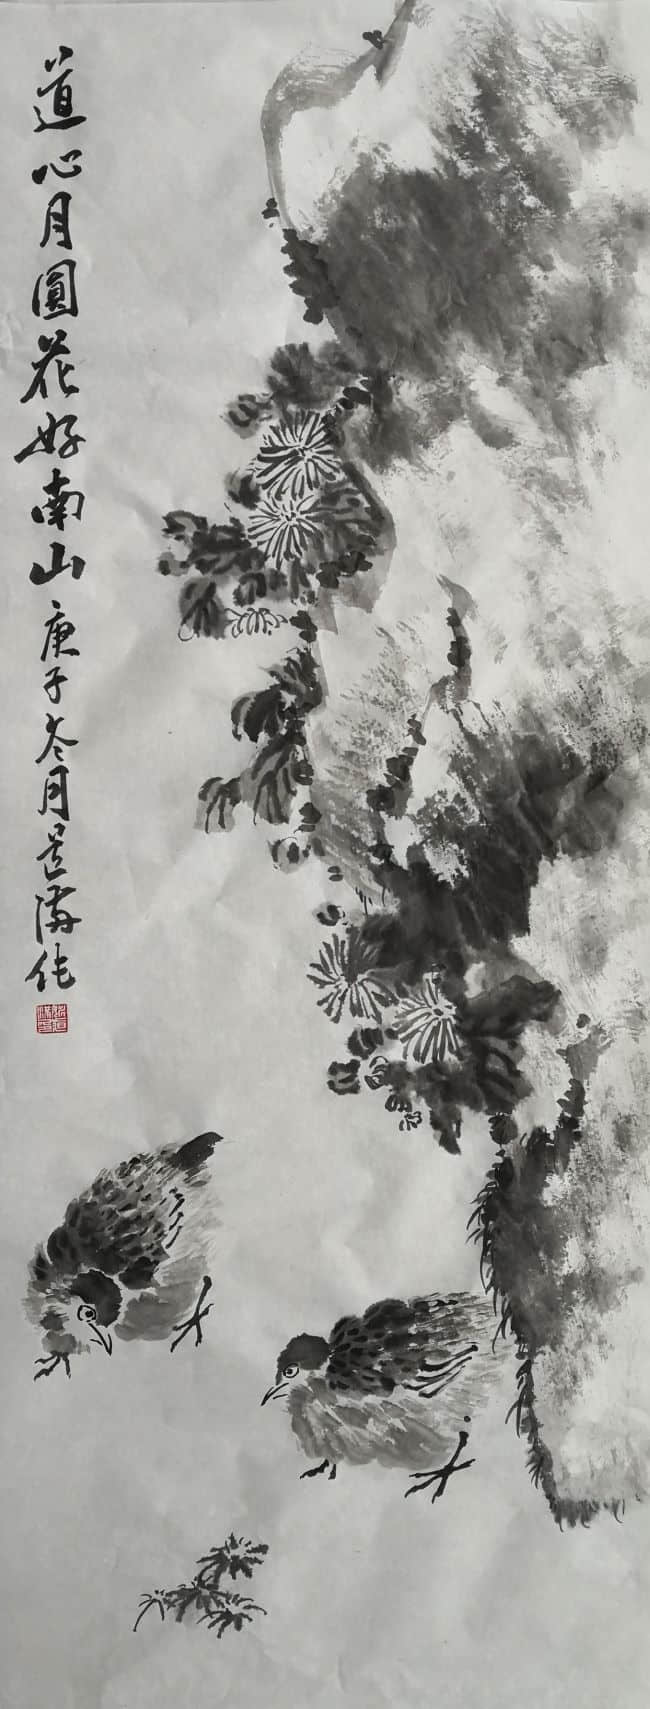 道心月圓花好南山庚子冬月
作